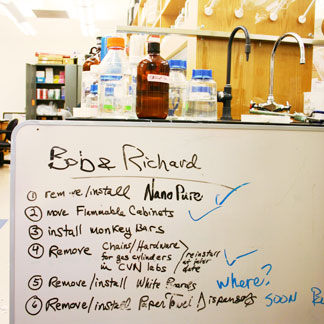 Bob & Richard
① remove/install NanoPure
② move Flammable Cabinets
③ install monkey Bars
④ Remove Chains/Hardware
for gas cylinders
in CVN labs
reinstall
at later
date
⑤ Remove/install White Boards
where?
⑥ Remove/install Paper Towel Dispensers SOON